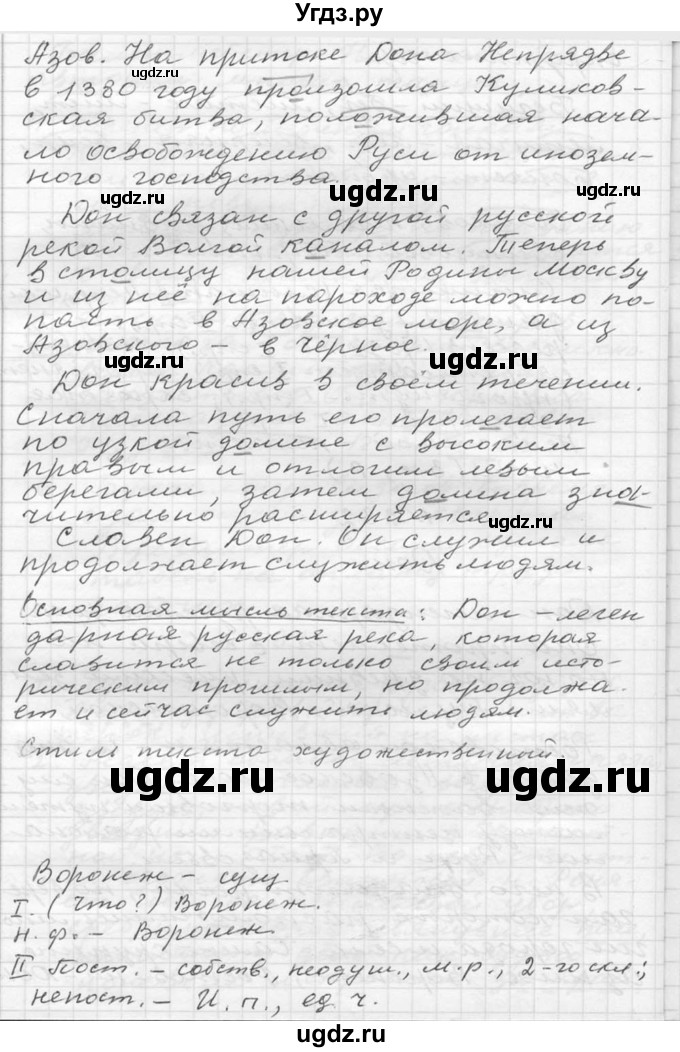 Угдз.ру
Азов. На притоке Дона Непрядве
в 1380 году произошла Куликов-
ская битва, положившая нача-
ло освобождению Руси от инозем-
ного господства.
Дон связан с другой русской
рекой Волгой каналом. Теперь
в столицу нашей Родины Москву
и из неё на пароходе можно по-
пасть в Азовское море, а из
Азовского - в Чёрное.
Дон красив в своём течении.
Сначала путь его пролегает
по узкой долине с высоким
правым и отлогим левым
берегами, затем долина зна-
чительно расширяется.
Славен Дон. Он служил и
продолжает служить людям.
Основная мысль текста: Дон - леген
дарная русская река, которая
славится не только своим исто-
рическим прошлым, но продолжа-
ет и сейчас служить людям.
Стиль текста художественный.
Воронеж - сущ.
I. (Что?) Воронеж.
н.ф. - Воронеж
II Пост. - собств., неодуш., м.р., 2-го скл.;
непост. - И.п., ед.ч.
ugdz.ru
ugdz.ru
ugdz.ru
ugdz.ru
ugdz.ru
ugdz.ru
ugdz.ru
ugdz.ru
ugdz.ru
ugdz.ru
ugdz.ru
ugdz.ru